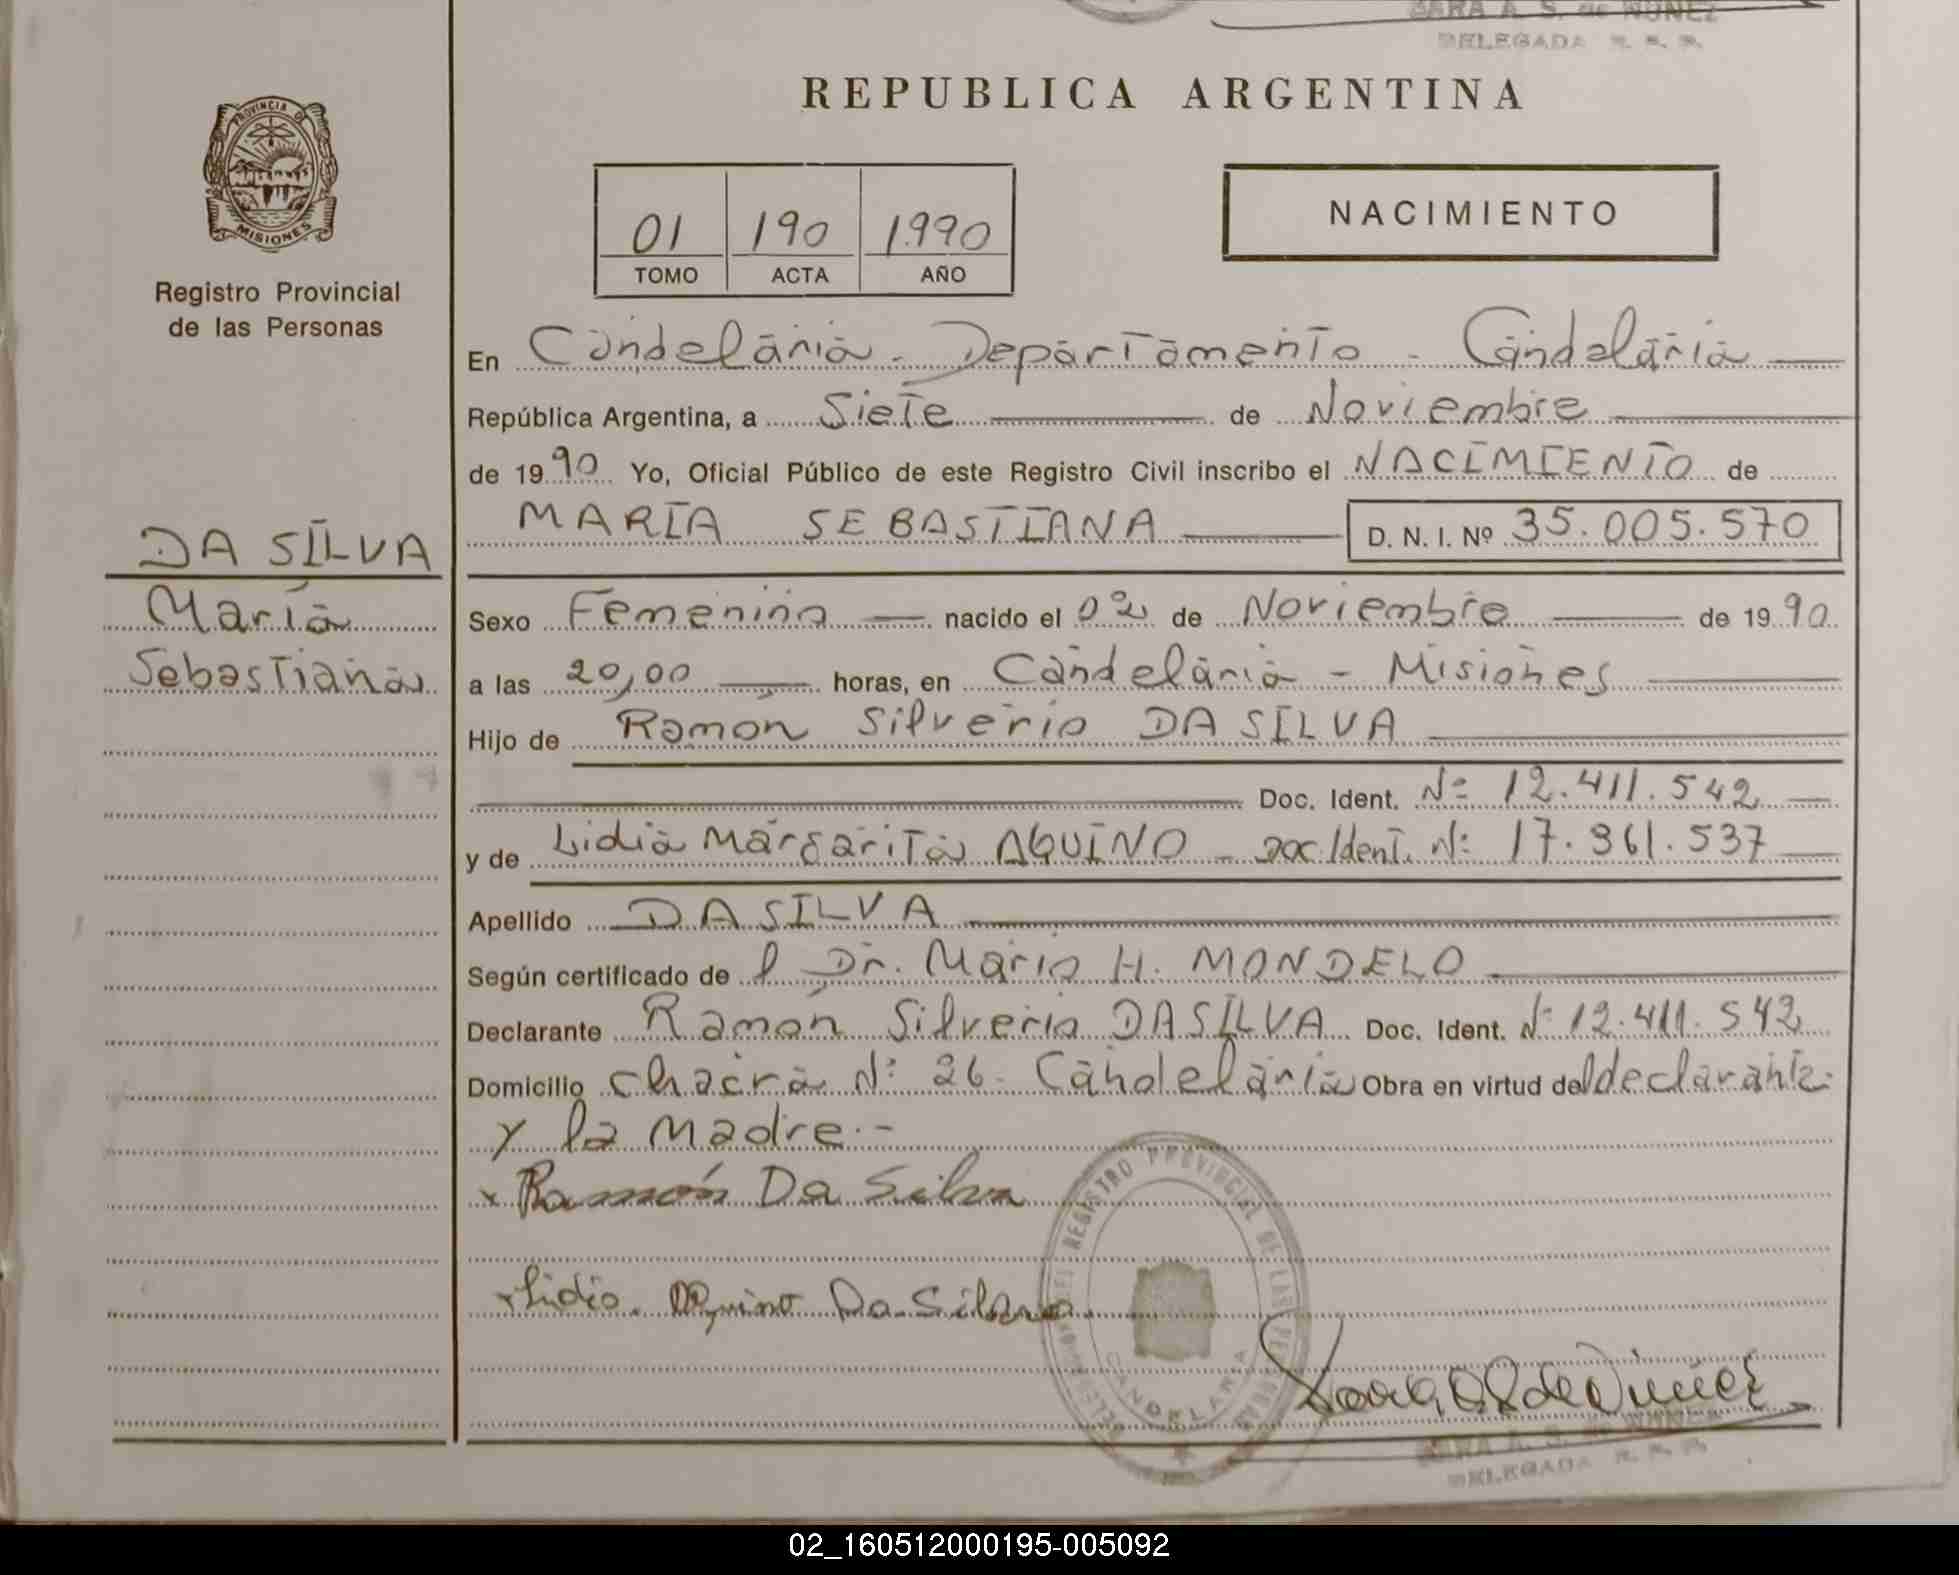 SARA A. S. de NUÑEZ
DELEGADA R. P. P.
REPUBLICA ARGENTINA
PROVINCIA DE
MISIONES
Registro Provincial
de las Personas
01 190 1990
TOMO ACTA AÑO
NACIMIENTO
En Candelaria - Departamento - Candelaria
República Argentina, a Siete de Noviembre
de 1990 Yo, Oficial Público de este Registro Civil inscribo el NACIMIENTO de
MARIA SEBASTIANA D. N. I. Nº 35.005.570
DA SILVA
María
Sebastiana
Sexo Femenino nacido el 02 de Noviembre de 1990
a las 20,00 horas, en Candelaria - Misiones
Hijo de Ramón Silverio DA SILVA
Doc. Ident. Nº 12.411.542
y de Lidia Margarita AQUINO - Doc. Ident. Nº 17.361.537
Apellido DA SILVA
Según certificado de l Dr. Mario H. MONDELO
Declarante Ramón Silverio DA SILVA Doc. Ident. Nº 12.411.542
Domicilio Chacra Nº 26 - Candelaria Obra en virtud del declarante
y la Madre.-
x Ramón Da Silva
x Lidia Aquino Da Silva
REGISTRO PROVINCIAL DE LAS PERSONAS
CANDELARIA
Sara A S de Nuñez
SARA A. S. de NUÑEZ
DELEGADA R. P. P.
02_160512000195-005092